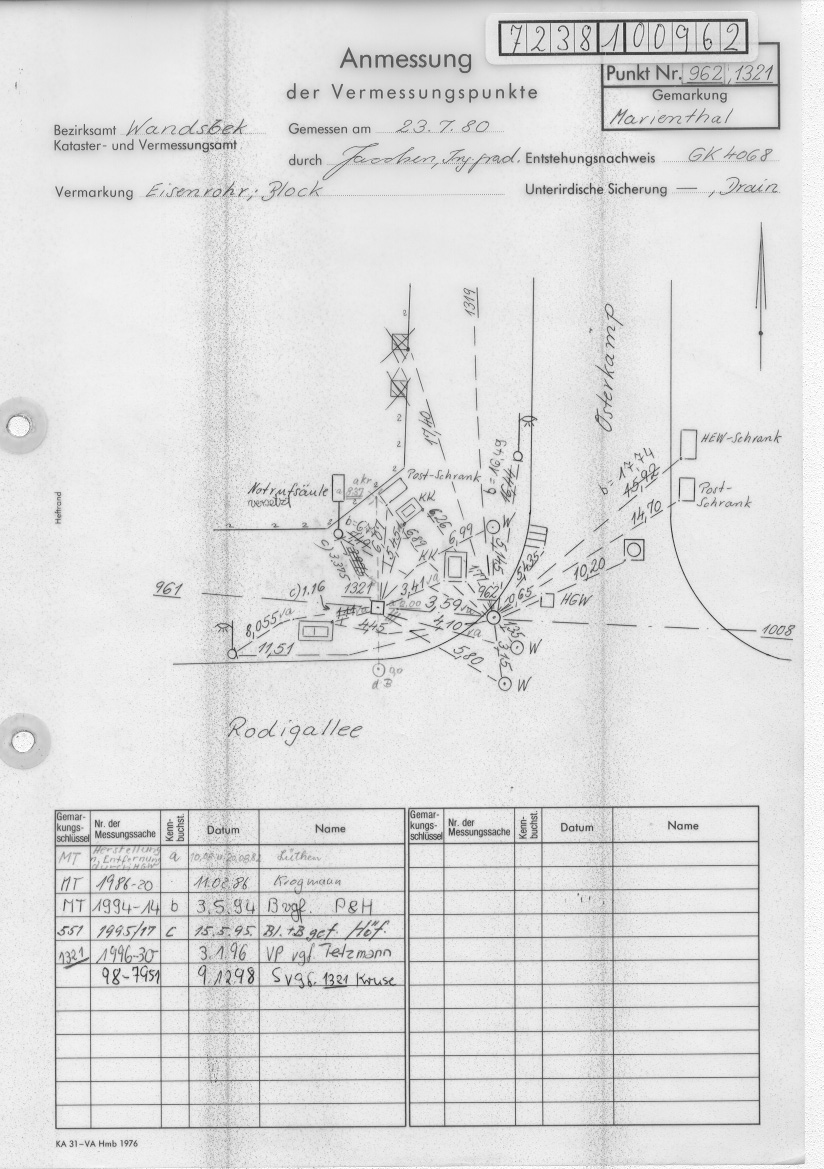 7238100962
Anmessung
der Vermessungspunkte
Punkt Nr. 962, 1321
Gemarkung
Marienthal
Bezirksamt Wandsbek
Kataster- und Vermessungsamt
Gemessen am 23.7.80
durch
Entstehungsnachweis GK 4068
Vermarkung Eisenrohr, Block
Unterirdische Sicherung — , Drain
Heftrand
1319
Osterkamp
17,40
b = 16,49
16,44
b = 17,74
15,92
HEW-Schrank
14,70
Post-Schrank
Notrufsäule
versetzt
akr
Post-Schrank
KK
6,26
6,89
KK
6,99
W
5,145
5,35
10,20
c) 3,375
961
c) 1.16
1321
3,41 va
962
10,65
HGW
3,59 va
8,055 va
4,45
4,10 va
1,35
W
1008
11,51
5,80
3,15
W
d.B
Rodigallee
Gemar-kungs-schlüssel
Nr. der Messungssache
Kenn-buchst.
Datum
Name
Gemar-kungs-schlüssel
Nr. der Messungssache
Kenn-buchst.
Datum
Name
MT Herstellung, Entfernung durch HGW a Lüthen
MT 1986-20 11.02.86 Krogmann
MT 1994-14 b 3.5.94 B vgf. P&H
551 1995/17 c 15.5.95 Bl.+B gef. Höf.
1321 1996-30 3.1.96 VP vgf Tetzmann
98-7951 9.12.98 S vgf. 1321 Kruse
KA 31–VA Hmb 1976